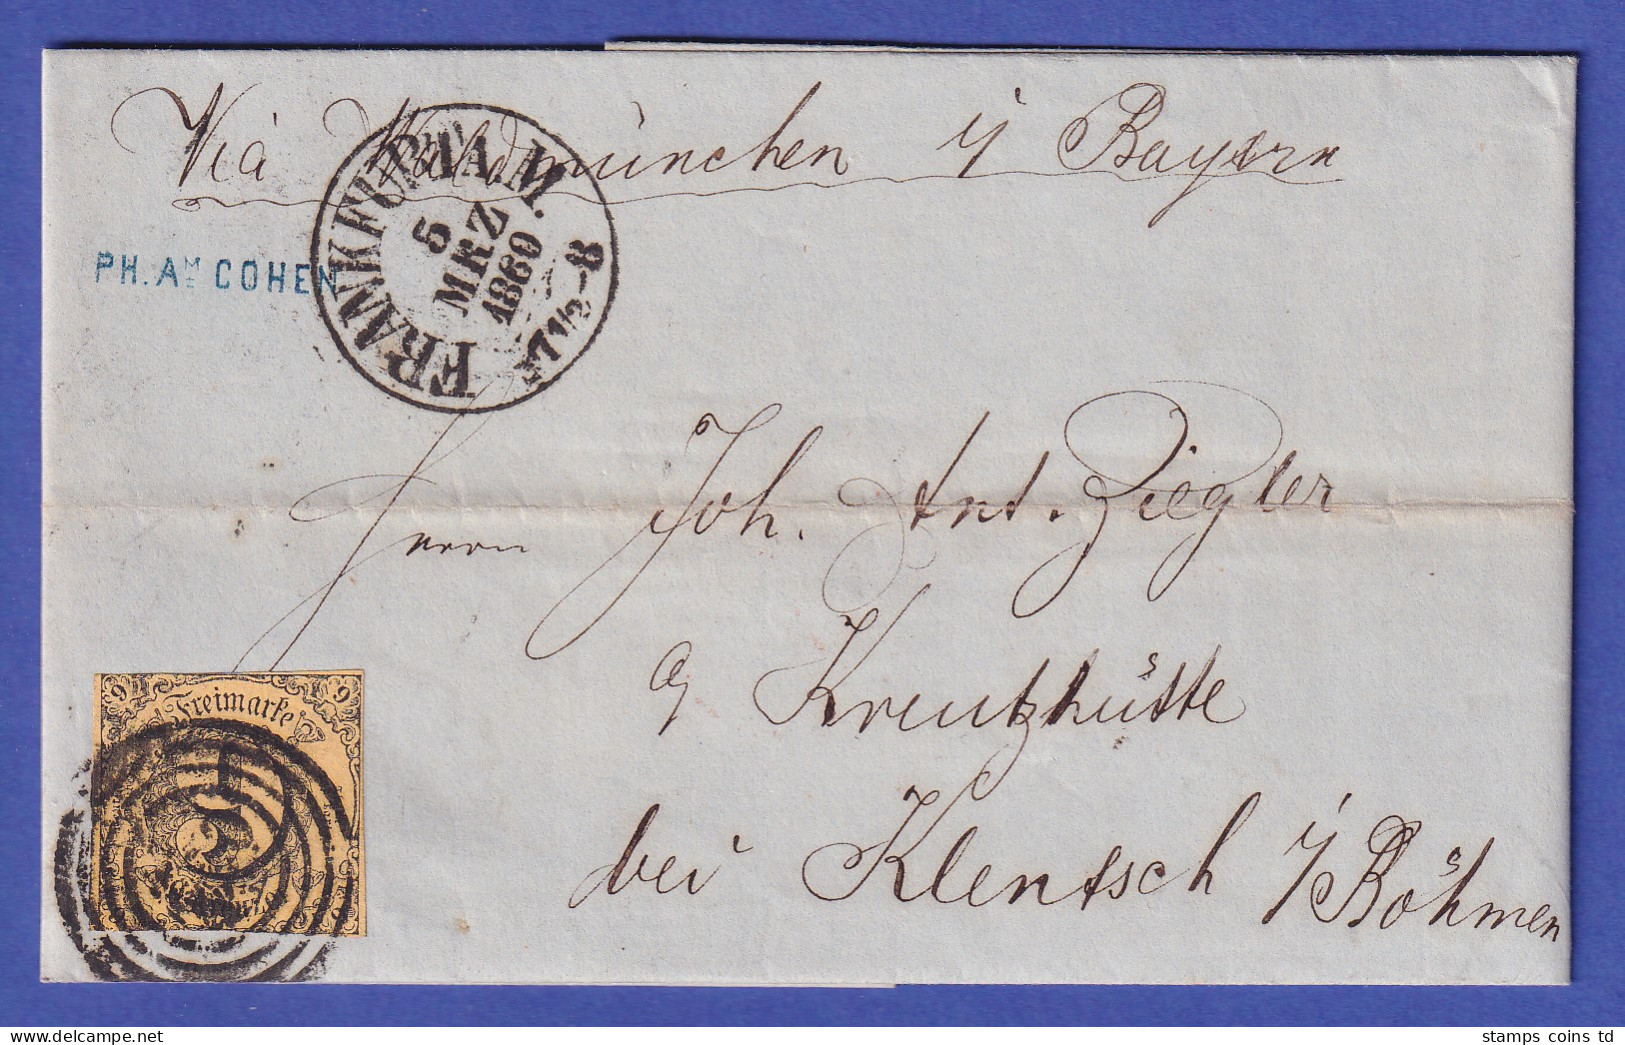 Via Waldmünchen i/ Bayern
FRANKFURT A. M.
5
MRZ
1860
7½-8
PH. AM COHEN
Herrn Joh. Ant. Ziegler
Kreutzhütte
bei Klentsch i/ Böhmen
9 9
Freimarke
stamps coins td